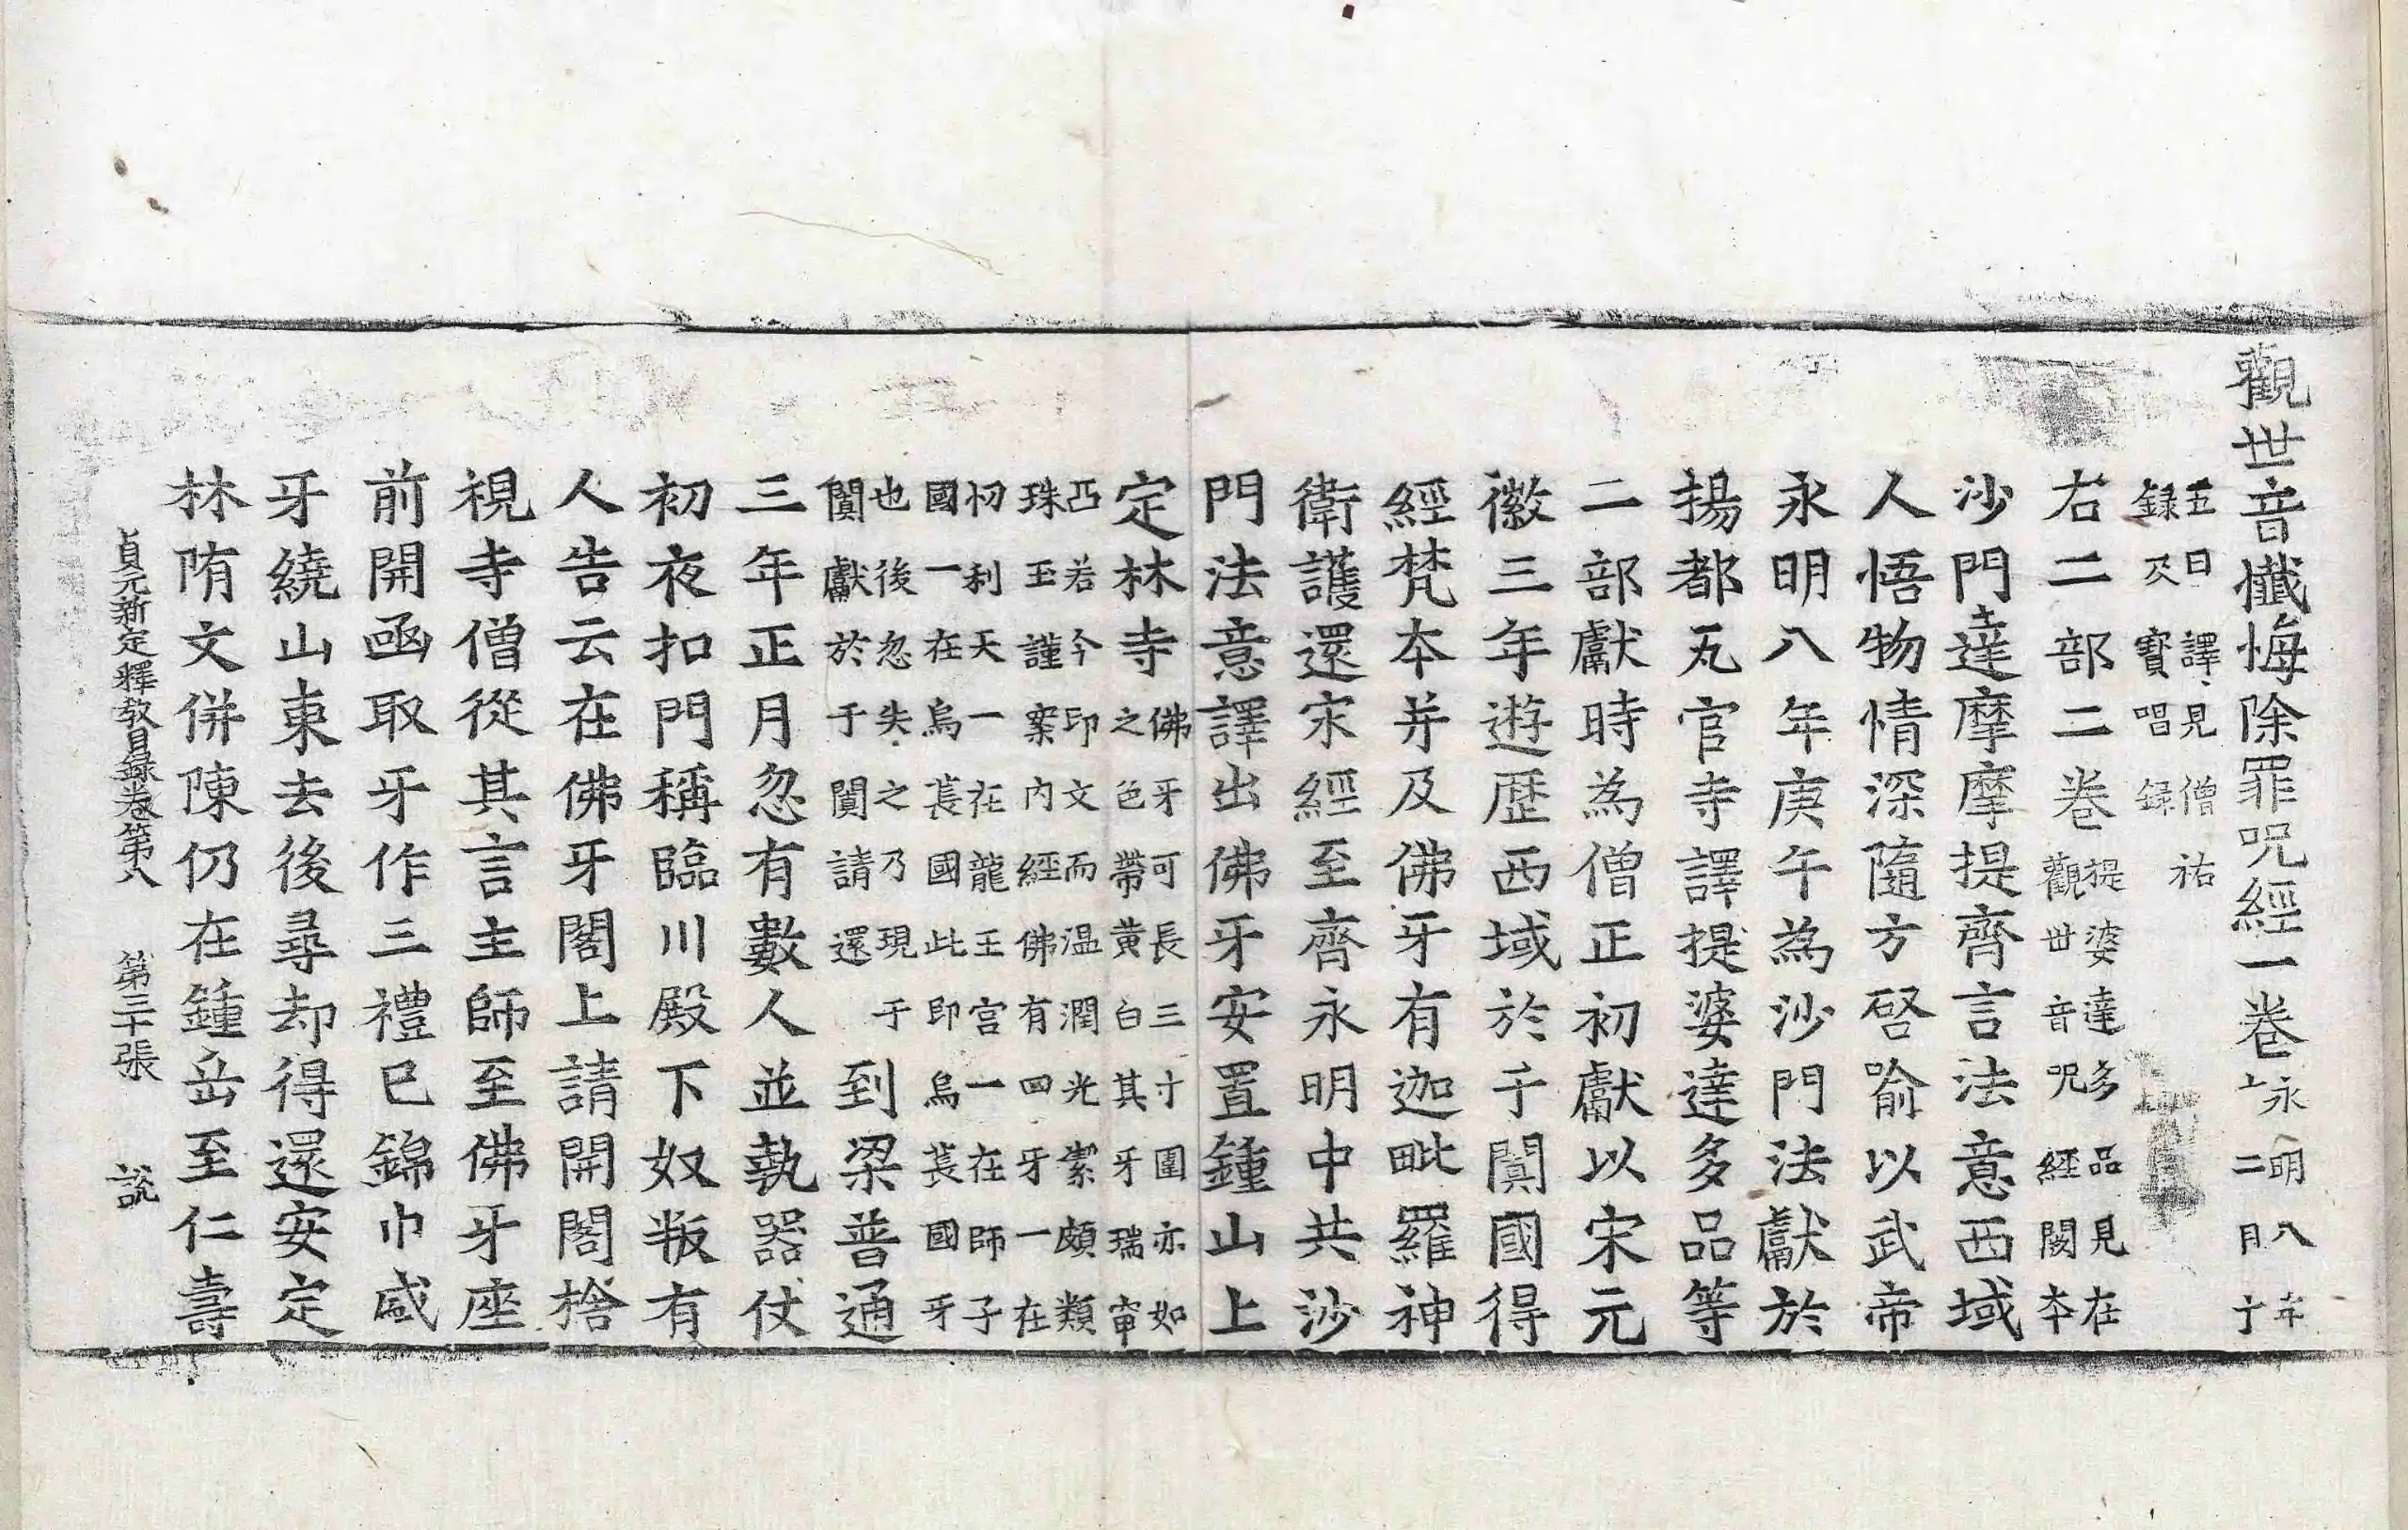 觀世音懺悔除罪呪經一卷永明八年十二月十
五日譯見僧祐録及寶唱録
右二部二卷提婆達多品見在觀世音呪經闕本
沙門達摩摩提齊言法意西域
人悟物情深隨方啓喻以武帝
永明八年庚午為沙門法獻於
揚都瓦官寺譯提婆達多品等
二部獻時為僧正初獻以宋元
徽三年遊歴西域於于闐國得
經梵本并及佛牙有迦毗羅神
衛護還宋經至齊永明中共沙
門法意譯出佛牙安置鍾山上
定林寺佛牙可長三寸圍亦如之色帶黄白其牙瑞窂
凸若今印文而温潤光㓗頗類珠玉謹案内經佛有四牙一在
忉利天一在龍王宫一在師子國一在烏萇國此即烏萇國牙
也後忽失之乃現于闐獻於于闐請還到梁普通
三年正月忽有數人並執器仗
初夜扣門稱臨川殿下奴叛有
人告云在佛牙閣上請開閣捨
視寺僧從其言主師至佛牙座
前開函取牙作三禮已錦巾盛
牙繞山東去後尋却得還安定
林隋文併陳仍在鍾岳至仁壽
貞元新定釋教目録卷第八 第三十張 説